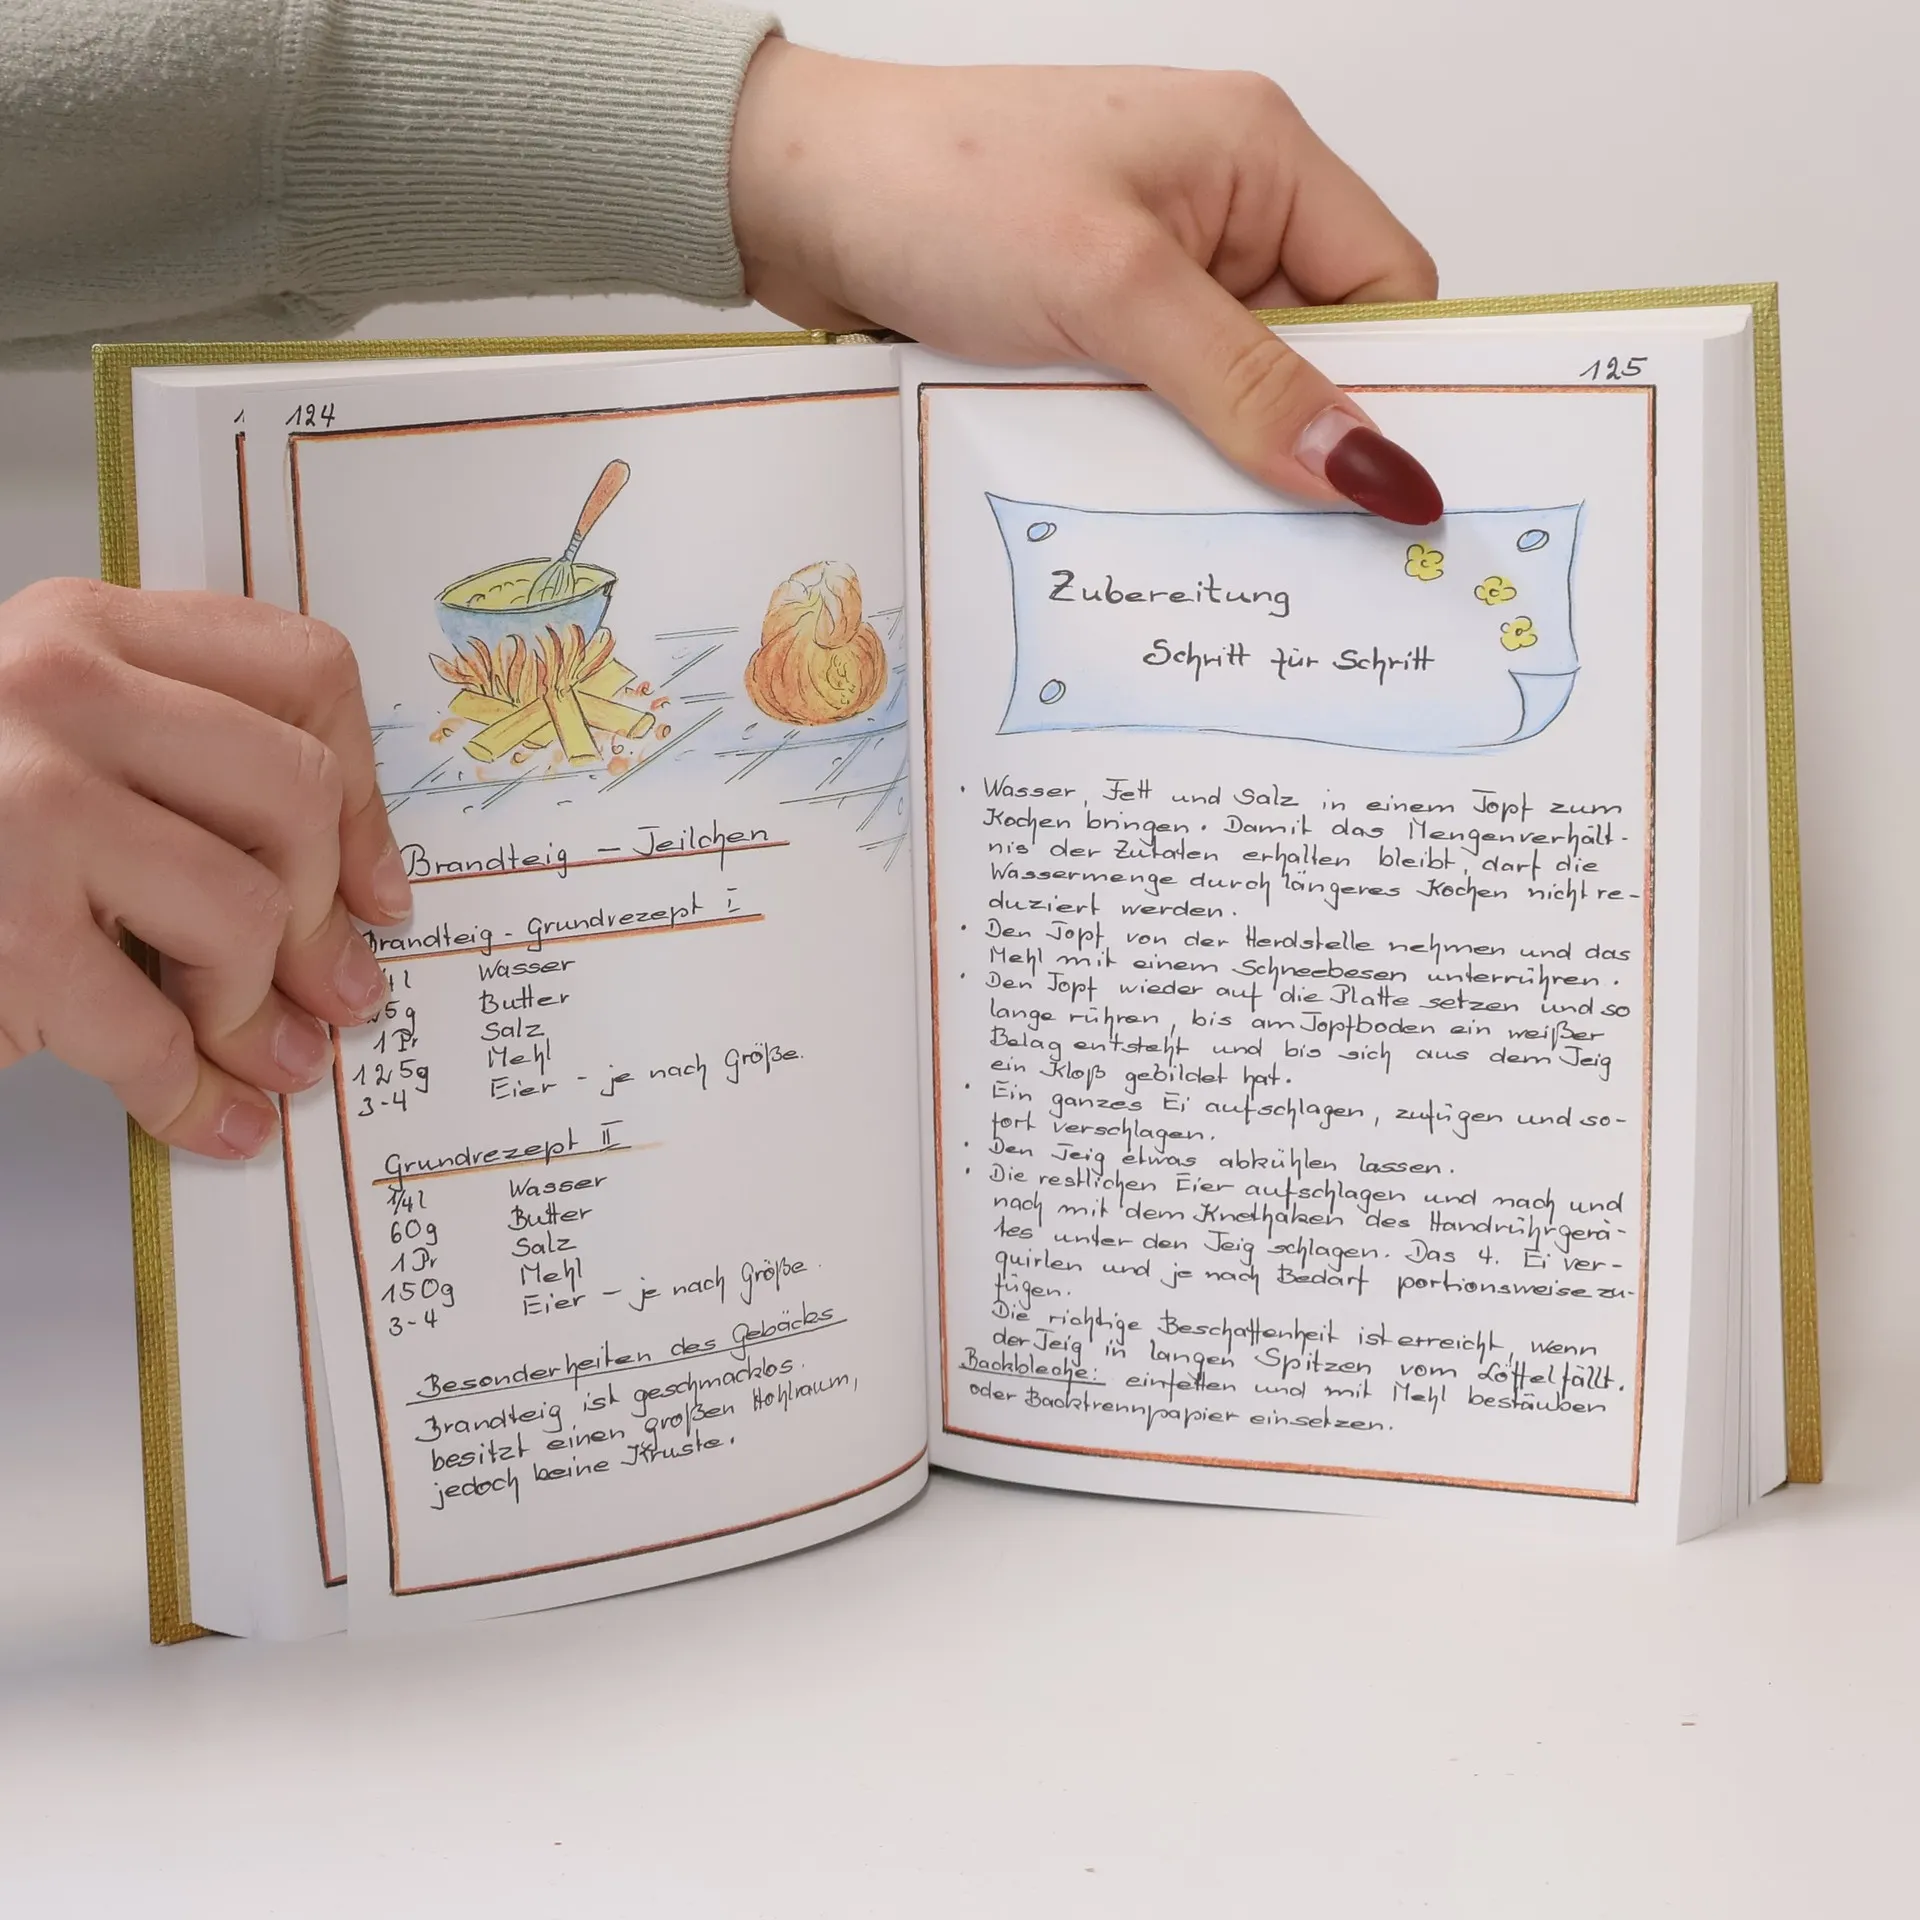 124
Brandteig - Teilchen
Brandteig - Grundrezept I
Wasser
5g Butter
1 Pr Salz
125g Mehl
3-4 Eier - je nach Größe.
Grundrezept II
1/4 l Wasser
60g Butter
1 Pr Salz
150g Mehl
3-4 Eier - je nach Größe.
Besonderheiten des Gebäcks
Brandteig ist geschmacklos.
besitzt einen großen Hohlraum,
jedoch keine Kruste.
125
Zubereitung
Schritt für Schritt
• Wasser, Fett und Salz in einem Topf zum
Kochen bringen. Damit das Mengenverhält-
nis der Zutaten erhalten bleibt, darf die
Wassermenge durch längeres Kochen nicht re-
duziert werden.
• Den Topf von der Herdstelle nehmen und das
Mehl mit einem Schneebesen unterrühren.
• Den Topf wieder auf die Platte setzen und so
lange rühren, bis am Topfboden ein weißer
Belag entsteht und bis sich aus dem Teig
ein Kloß gebildet hat.
• Ein ganzes Ei aufschlagen, zufügen und so-
fort verschlagen.
• Den Teig etwas abkühlen lassen.
• Die restlichen Eier aufschlagen und nach und
nach mit dem Knethaken des Handrührgerä-
tes unter den Teig schlagen. Das 4. Ei ver-
quirlen und je nach Bedarf portionsweise zu-
fügen.
Die richtige Beschaffenheit ist erreicht, wenn
der Teig in langen Spitzen vom Löffel fällt.
Backbleche: einfetten und mit Mehl bestäuben
oder Backtrennpapier einsetzen.